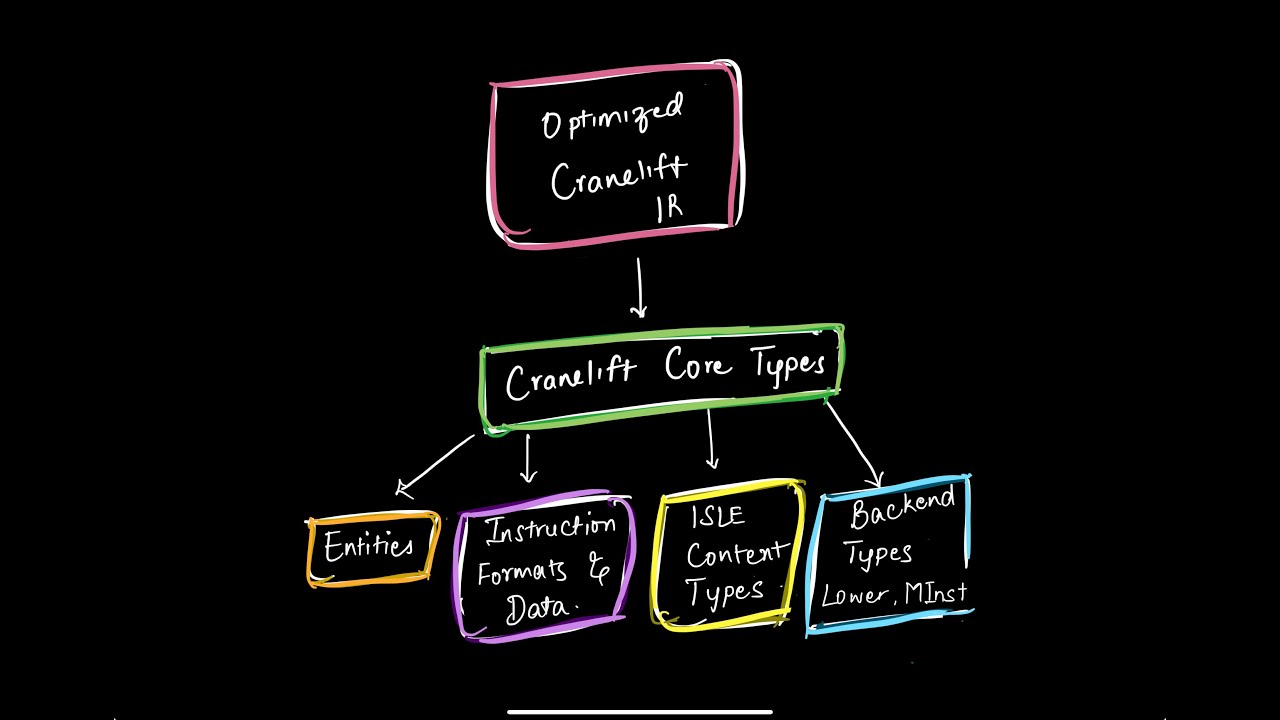 Optimized
Cranelift
IR
Cranelift Core Types
Entities
Instruction
Formats &
Data.
ISLE
Context
Types.
Backend
Types
Lower, MInst